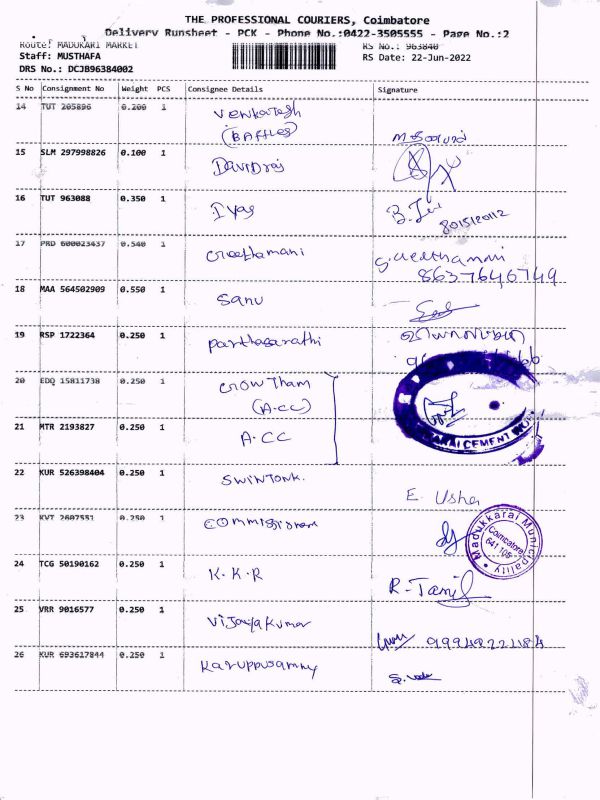 THE PROFESSIONAL COURIERS, Coimbatore
Delivery Runsheet - PCK - Phone No.:0422-3505555 - Page No.:2
Route: MADUKARI MARKET
RS No.: 963840
Staff: MUSTHAFA
RS Date: 22-Jun-2022
DRS No.: DCJB96384002
S No Consignment No Weight PCS Consignee Details Signature
14 TUT 205896 0.200 1 Venkatesh
(BAFFLES)
15 SLM 297998826 0.100 1 Davidraj
16 TUT 963088 0.350 1 Iyas
8015120112
17 PRD 600023437 0.540 1 Geethamani G.Geethamani
8637646749
18 MAA 564502909 0.550 1 Sanu
19 RSP 1722364 0.250 1 Parthasarathi
20 EDQ 15811738 0.250 1 Gowtham
(A.CC)
21 MTR 2193827 0.250 1 A.CC
CEMENT
22 KUR 526398404 0.250 1 Swintonk. E Usha
23 KVT 2607551 0.250 1 Commissioner
Madukkarai Municipality
Coimbatore
641 105
24 TCG 50190162 0.250 1 K.K.R
25 VRR 9016577 0.250 1 Vijayakumar
26 KUR 693617844 0.250 1 Karuppusamy